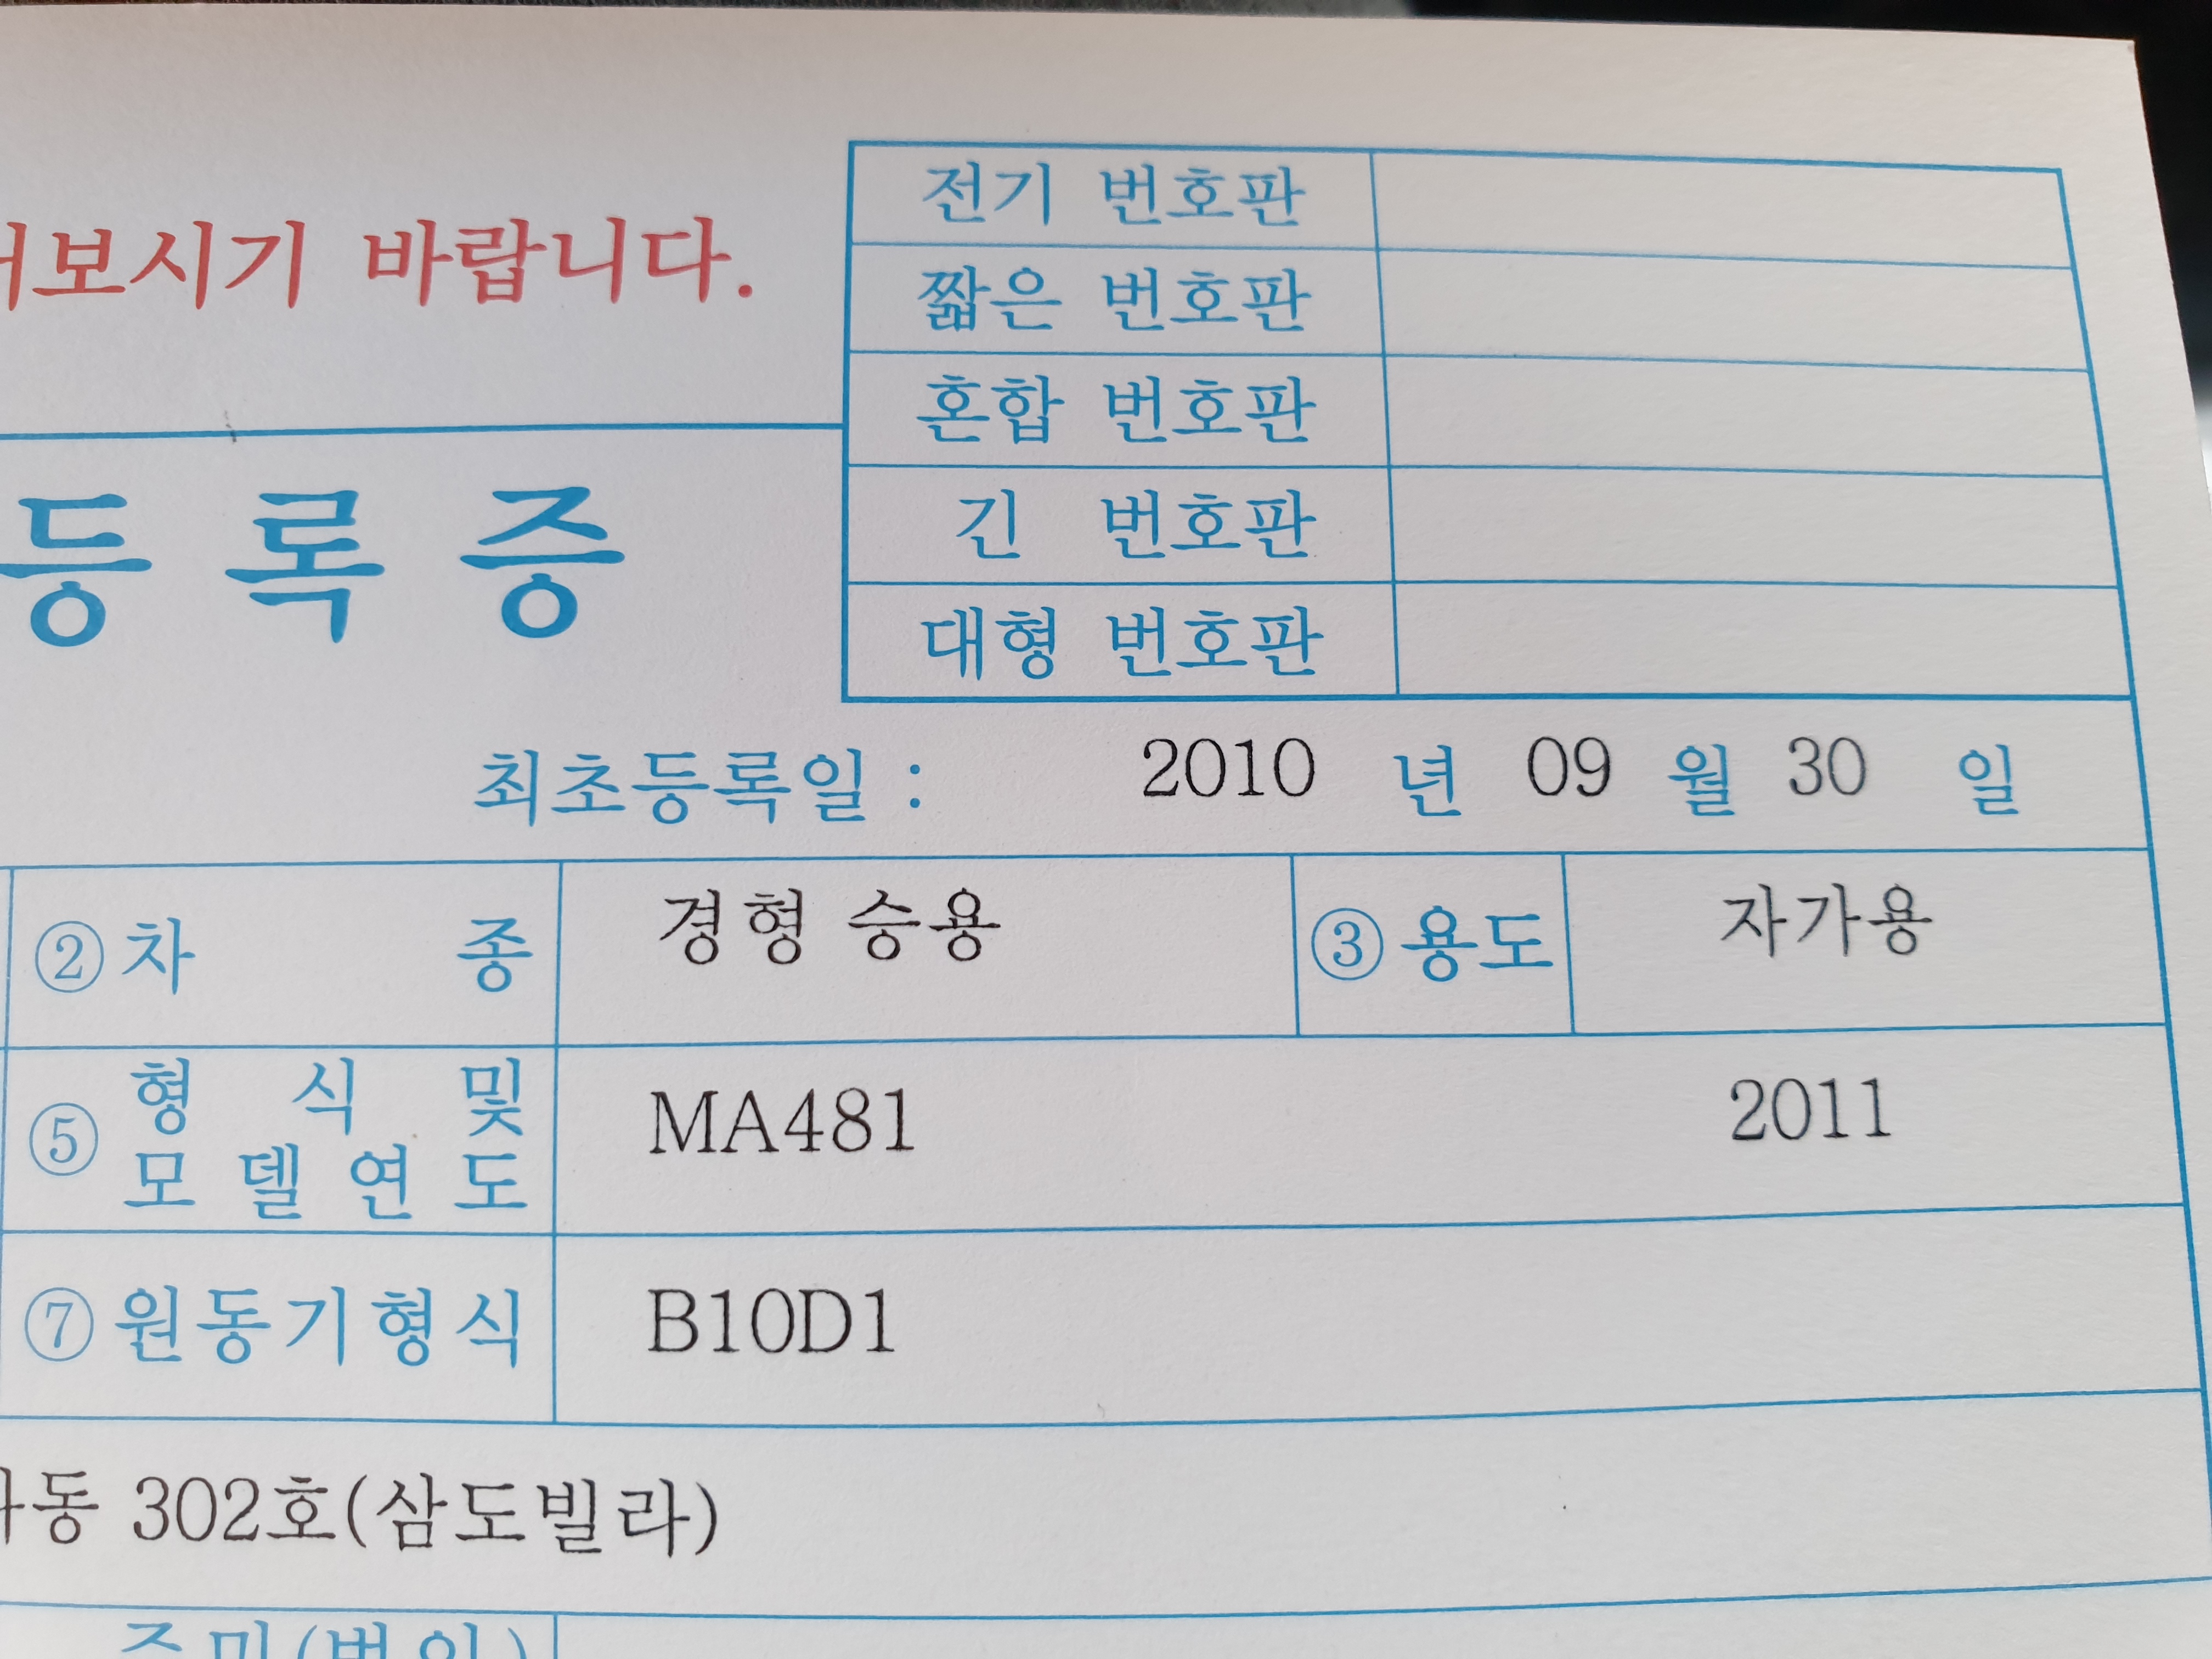 전기 번호판
보시기 바랍니다.
짧은 번호판
혼합 번호판
등록증
긴 번호판
대형 번호판
최초등록일 : 2010 년 09 월 30 일
② 차 종 경형 승용 ③ 용도 자가용
⑤ 형 식 및 모 델 연 도 MA481 2011
⑦ 원동기형식 B10D1
동 302호(삼도빌라)